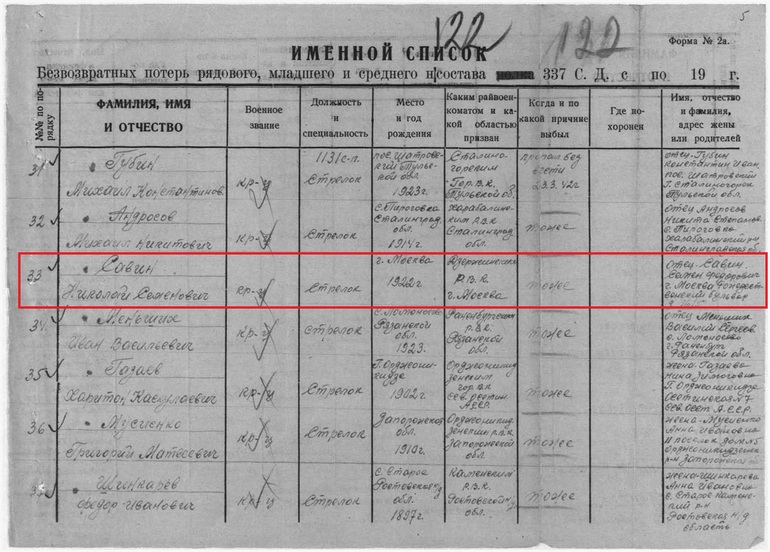 122
122
5
Форма № 2а.
ИМЕННОЙ СПИСОК
Безвозвратных потерь рядового, младшего и среднего н/состава полка 337 С. Д. с по 19 г.
№№ по порядку
ФАМИЛИЯ, ИМЯ И ОТЧЕСТВО
Военное звание
Должность и специальность
Место и год рождения
Каким райвоенкоматом и какой областью призван
Когда и по какой причине выбыл
Где похоронен
Имя, отчество и фамилия, адрес жены или родителей
31
Губин
Михаил Константинов.
кр-ц
1131 с.п.
Стрелок
1923г.
Сталиногорским
Гор.В.К.
Тульской обл.
пропал без
вести
23.3.42г.
отец-Губин
Константин Иван.
пос. Шатровский
Г. Сталиногорск
Тульской обл.
32
Андросов
Михаил Никитович
кр-ц
Стрелок
с. Пироговка
Сталинград.
обл.
1914г.
Харабалинским Р.В.К.
Сталинград.
обл.
тоже
отец Андросов
Никита Степанов.
с. Пироговка
33
Савин
Николай Семенович
кр-ц
Стрелок
г. Москва
1922г.
Дзержинским
Р.В.К.
г. Москва
тоже
отец-Савин
Семен Федорович
г. Москва
бульвар
34
Меньших
Иван Васильевич
кр-ц
стрелок
Рязанской
обл.
1923.
Раненбургским
Р.В.К.
Рязанской
обл.
тоже
отец Меньших
Василий Сергеев.
г. Раненбург
Рязанской обл.
35
Газаев
Харитон
кр-ц
Стрелок
Г. Орджоникидзе
1902г.
Орджоникидзевским
гор В.К.
сев. осетин
АССР.
тоже
жена-Газаева
Г. Орджоникидзе
Осетинская 7
Сев. Осет. А.С.С.Р.
36
Мусиенко
Григорий Матвеевич
кр-ц
Стрелок
Запорожская
обл.
1910г.
Запорожской
обл.
тоже
жена-Мусиенко
Анна Ивановна
Шинкарев
Федор Иванович
кр-ц
Стрелок
с. Старое
Ростовская
обл.
1897г.
Каменским
Р.В.К.
Ростовской
обл.
тоже
жена-Шинкарева
Анна Иванов.
с. Старое Каменский
р-н
Ростовская н/д
область